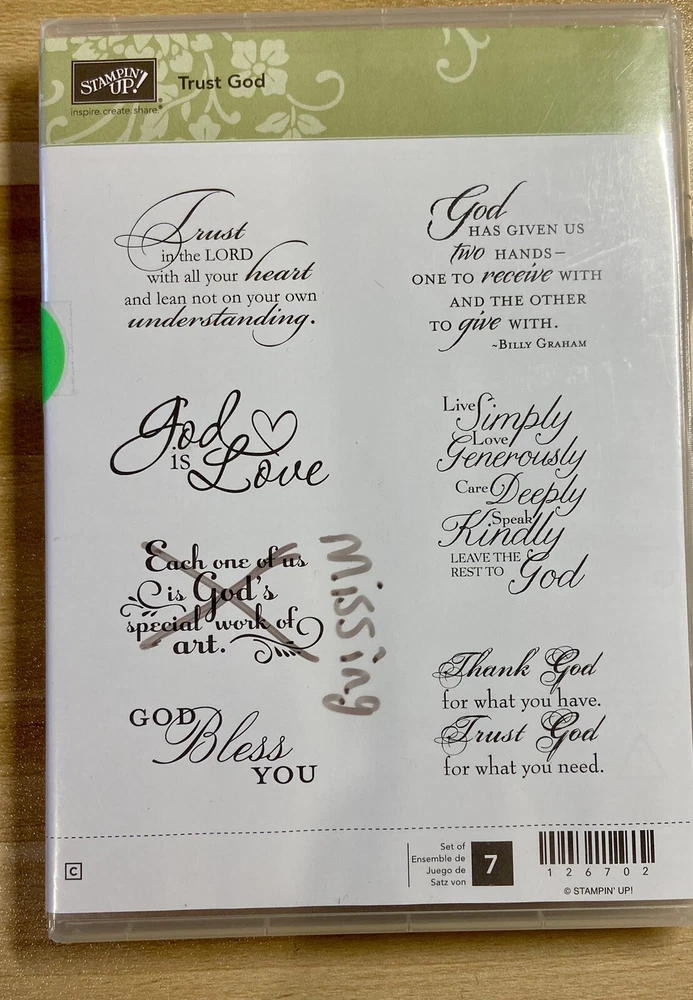 STAMPIN' UP!®
inspire. create. share.®
Trust God
Trust
in the LORD
with all your heart
and lean not on your own
understanding.
God
HAS GIVEN US
two HANDS–
ONE TO receive WITH
AND THE OTHER
TO give WITH.
~BILLY GRAHAM
God
is Love
Live Simply
Love
Generously
Care Deeply
Speak
Kindly
LEAVE THE
REST TO God
Each one of us
is God's
special work of
art.
Missing
GOD
Bless
YOU
Thank God
for what you have.
Trust God
for what you need.
C
Set of
Ensemble de
Juego de
Satz von
7
1 2 6 7 0 2
© STAMPIN' UP!